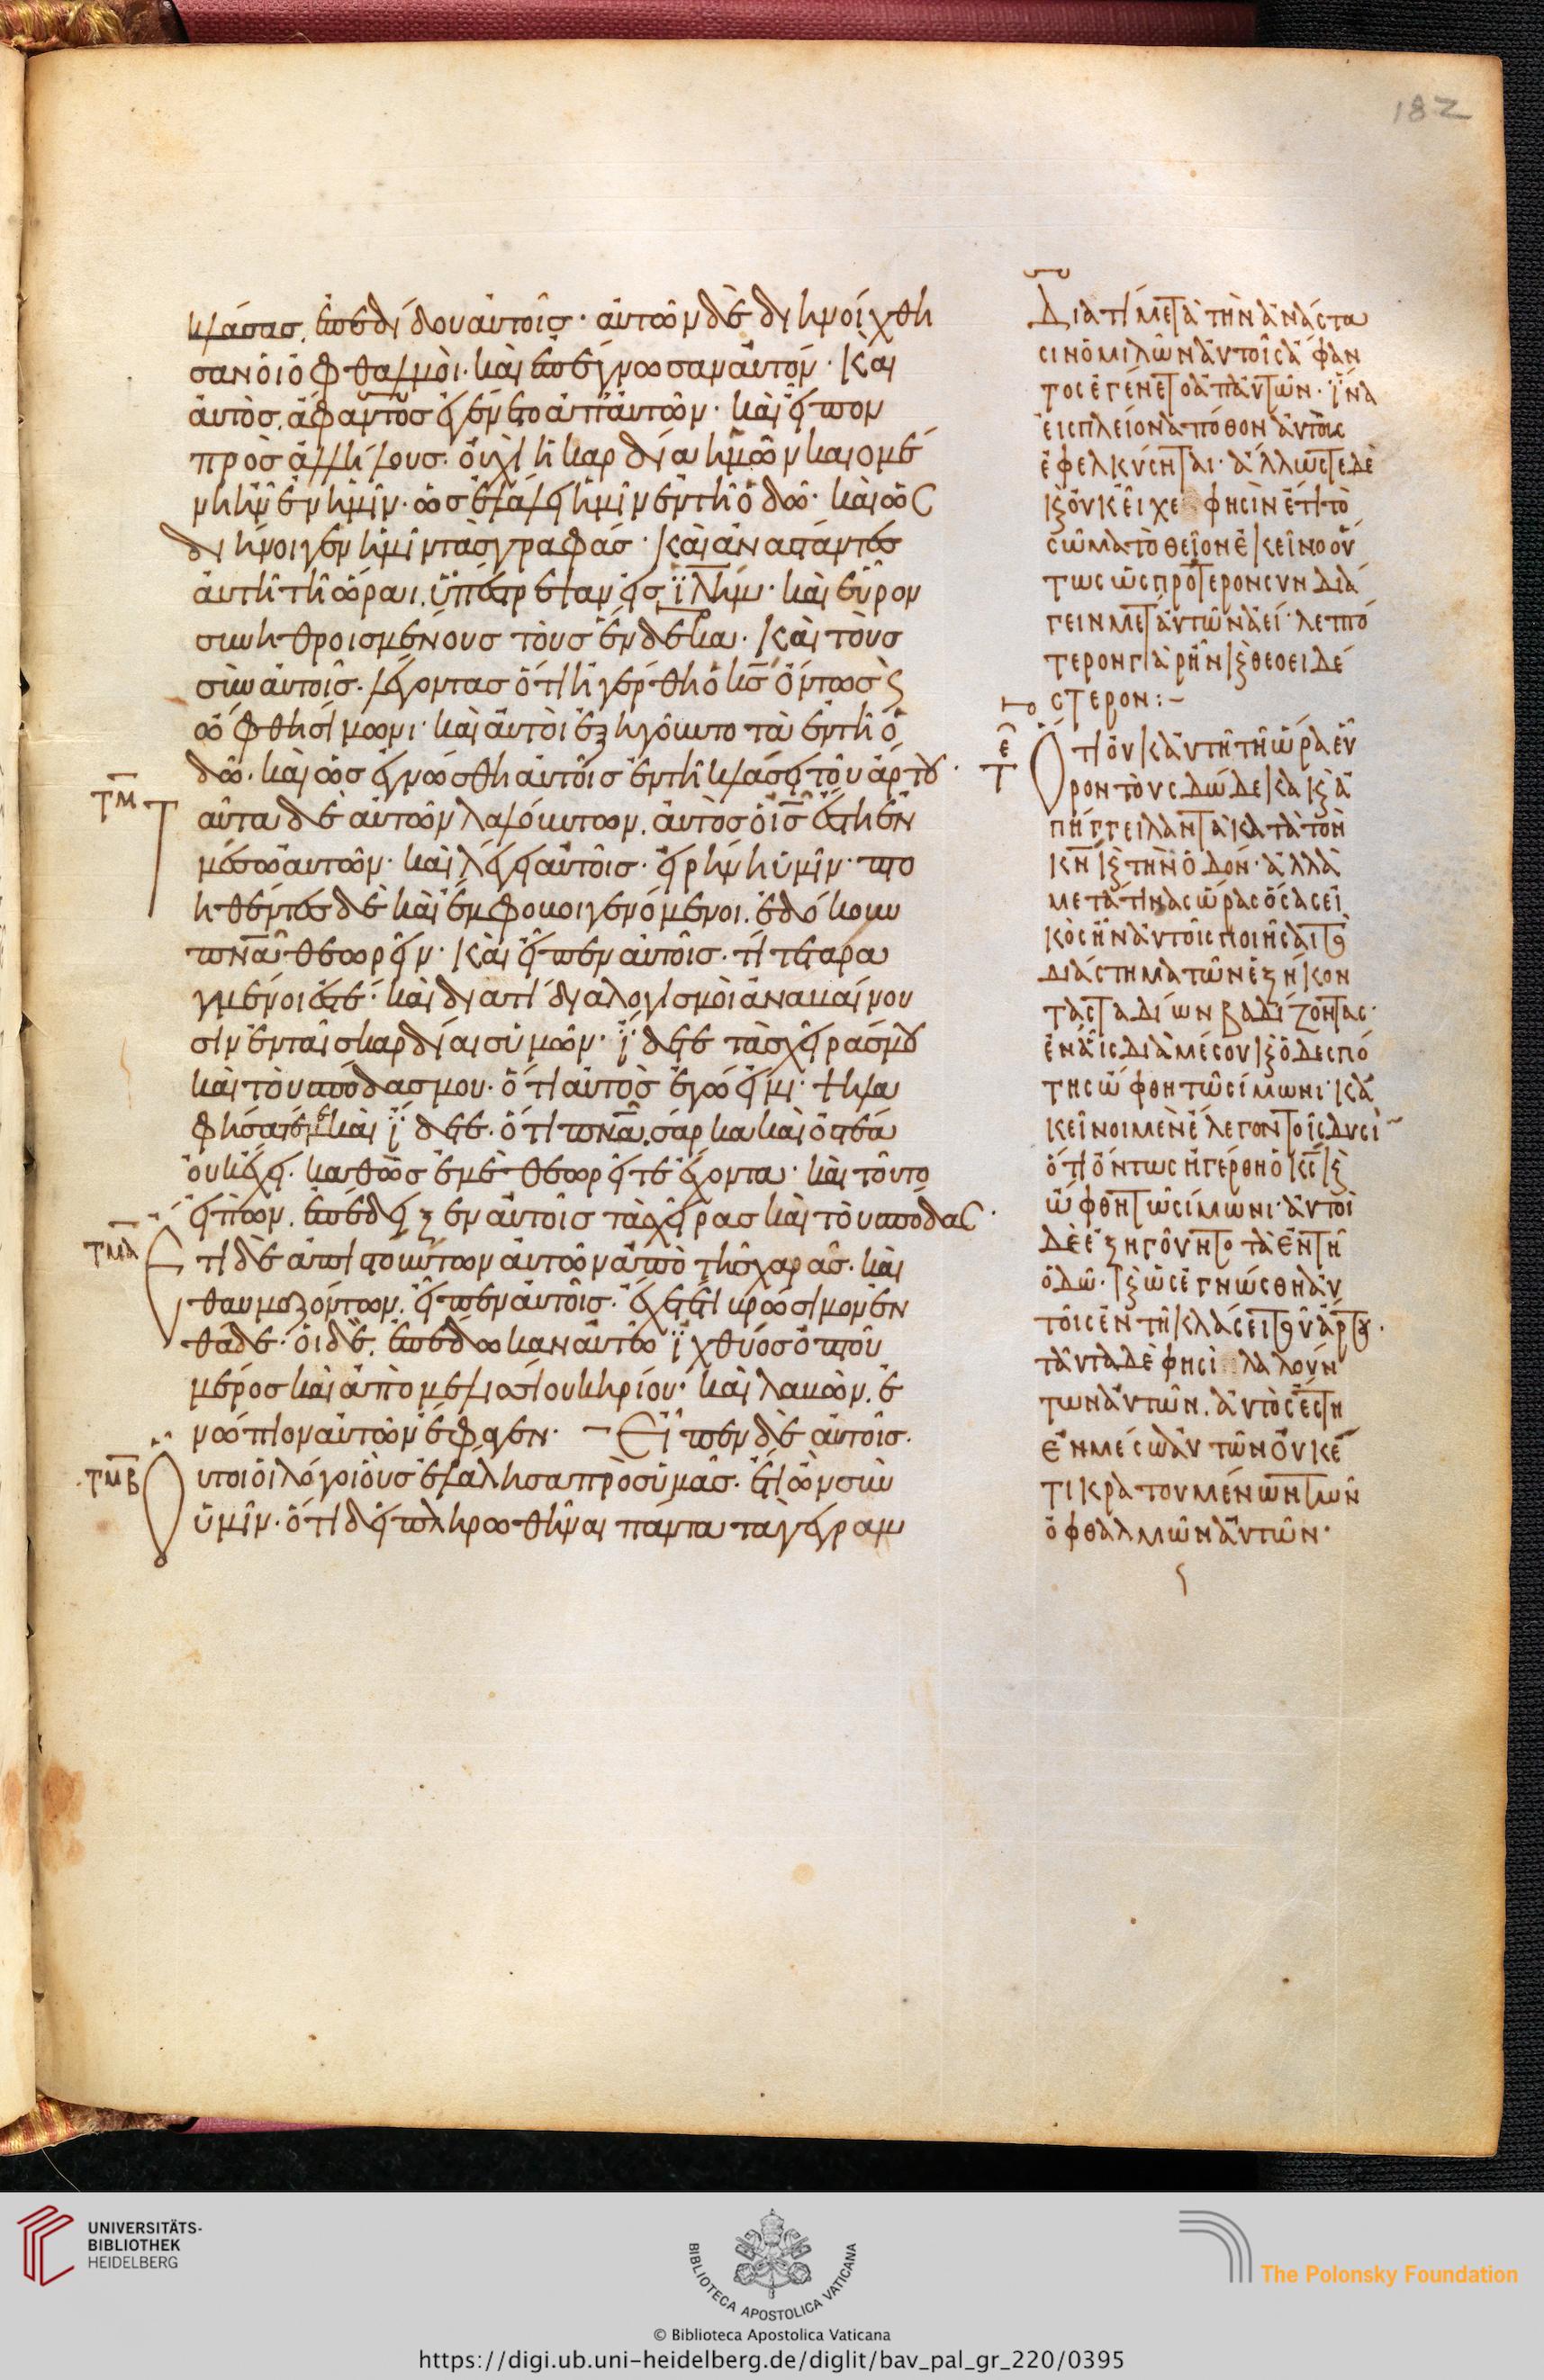 182
κλάσας, ἐπεδίδου αὐτοῖς· αὐτῶν δὲ διηνοίχθη
σαν οἱ ὀφθαλμοὶ· καὶ ἐπέγνωσαν αὐτόν· Καὶ
αὐτὸς, ἄφαντος ἐγένετο ἀπ' αὐτῶν· καὶ εἶπον
πρὸς ἀλλήλους· οὐχὶ ἡ καρδία ἡμῶν καιομέ
νη ἦν ἐν ἡμῖν· ὡς ἐλάλει ἡμῖν ἐν τῆ ὁδῶ· καὶ ὡς
διήνοιγεν ἡμῖν τὰς γραφάς· Καὶ ἀναστάντες
αὐτῆ τῆ ὥραι, ὑπέστρεψαν εἰς ϊλημ· καὶ εὗρον
συνηθροισμένους τοὺς ἕνδεκα· Καὶ τοὺς
σὺν αὐτοῖς· λέγοντας ὅτι ἠγέρθη ὁ κς ὄντως ϛ
ὤφθη σίμωνι· καὶ αὐτοὶ ἐξηγοῦντο τὰ ἐν τῆ ὁ
δῶ· καὶ ὡς ἐγνώσθη αὐτοῖς ἐν τῆ κλάσει τοῦ ἄρτου·
τμ Ταῦτα δὲ αὐτῶν λαλούντων, αὐτὸς ὁ ις ἔστη ἐν
μέσω αὐτῶν· καὶ λέγει αὐτοῖς· εἰρήνη ὑμῖν· πτο
ηθέντες δὲ καὶ ἔμφοβοι γενόμενοι, ἐδόκουν
πνα θεωρεῖν· Καὶ εἶπεν αὐτοῖς· τί τεταρα
γμένοι ἐστέ· καὶ διατί διαλογισμοὶ ἀναβαίνου
σιν ἐν ταῖς καρδίαις ὑμῶν· ἴδετε τὰς χεῖράς μου
καὶ τοὺς πόδας μου· ὅτι αὐτὸς ἐγώ εἰμι· ψηλα
φήσατέ με καὶ ἴδετε· ὅτι πνα, σάρκα καὶ ὀστέα
οὐκ ἔχει· καθὼς ἐμὲ θεωρεῖτε ἔχοντα· καὶ τοῦτο
εἰπὼν, ἐπέδειξεν αὐτοῖς τὰς χεῖρας καὶ τοὺς πόδας·
τμα Ἔτι δὲ ἀπιστούντων αὐτῶν ἀπὸ τῆς χαρᾶς· καὶ
θαυμαζόντων, εἶπεν αὐτοῖς· ἔχετέ τι βρώσιμον ἐν
θάδε· οἱ δὲ, ἐπέδωκαν αὐτῶ ἰχθύος ὀπτοῦ
μέρος καὶ ἀπὸ μελισσίου κηρίου· καὶ λαβὼν, ἐ
νώπιον αὐτῶν ἔφαγεν· Εἶπεν δὲ αὐτοῖς·
τμβ Οὗτοι οἱ λόγοι οὓς ἐλάλησα πρὸς ὑμᾶς· ἔτι ὢν σὺν
ὑμῖν· ὅτι δεῖ πληρωθῆναι πάντα τὰ γεγραμ
Διατί μετὰ τὴν ἀνάστα
σιν ὁμιλῶν αὐτοῖς ἄφαν
τος ἐγένετο ἀπ' αὐτῶν· ἵνα
εἰς πλείονα πόθον αὐτοὺς
ἐφελκύσηται· ἄλλως τε δὲ
καὶ οὐκ εἶχε φησὶν ἔτι τὸ
σῶμα τὸ θεῖον ἐκεῖνο οὕ
τως ὡς πρότερον συνδιά
γειν μετ' αὐτῶν ἀεί· λεπτό
τερον γὰρ ἦν καὶ θεοειδέ
στερον:–
Ὅτι οὐκ αὐτῆ τῆ ὥρα εὗ
ρον τοὺς δώδεκα καὶ ἀ
πήγγειλαν τὰ κατὰ τὸν
κν καὶ τὴν ὁδόν· ἀλλὰ
μετά τινας ὥρας ὅσας εἰ
κὸς ἦν αὐτοῖς ποιῆσαι τὸ
διάστημα τῶν ἑξήκον
τα σταδίων βαδίζοντας·
ἐν αἷς διὰ μέσου καὶ ὁ δεσπό
της ὤφθη τῶ σίμωνι· κα
κεῖνοι μὲν ἔλεγον τοῖς δυσὶ
ὅτι ὄντως ἠγέρθη ὁ κς καὶ
ὤφθη τῶ σίμωνι· αὐτοὶ
δὲ ἐξηγοῦντο τὰ ἐν τῆ
ὁδῶ· καὶ ὡς ἐγνώσθη αὐ
τοῖς ἐν τῆ κλάσει τοῦ ἄρτου·
ταῦτα δὲ φησὶ λαλούν
των αὐτῶν, αὐτὸς ἔστη
ἐν μέσω αὐτῶν οὐκέ
τι κρατουμένων τῶν
ὀφθαλμῶν αὐτῶν·
UNIVERSITÄTS-
BIBLIOTHEK
HEIDELBERG
BIBLIOTECA APOSTOLICA VATICANA
© Biblioteca Apostolica Vaticana
The Polonsky Foundation
https://digi.ub.uni-heidelberg.de/diglit/bav_pal_gr_220/0395